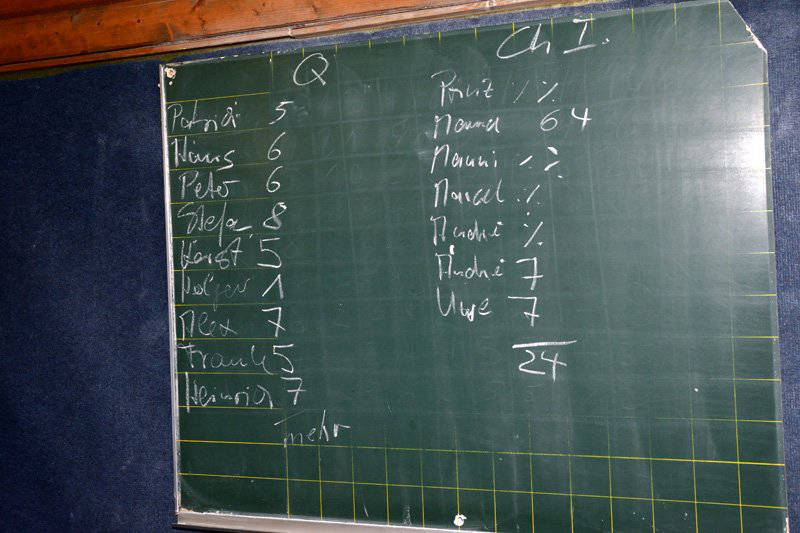 Q
Patrick 5
Hans 6
Peter 6
Stefan 8
Horst 5
Holger 1
Alex 7
Frank 5
Heinrich 7
mehr
Ch I.
Prinz % %
6 4
Manni % %
Marcel %
Andrei %
Andrei 7
Uwe 7
24